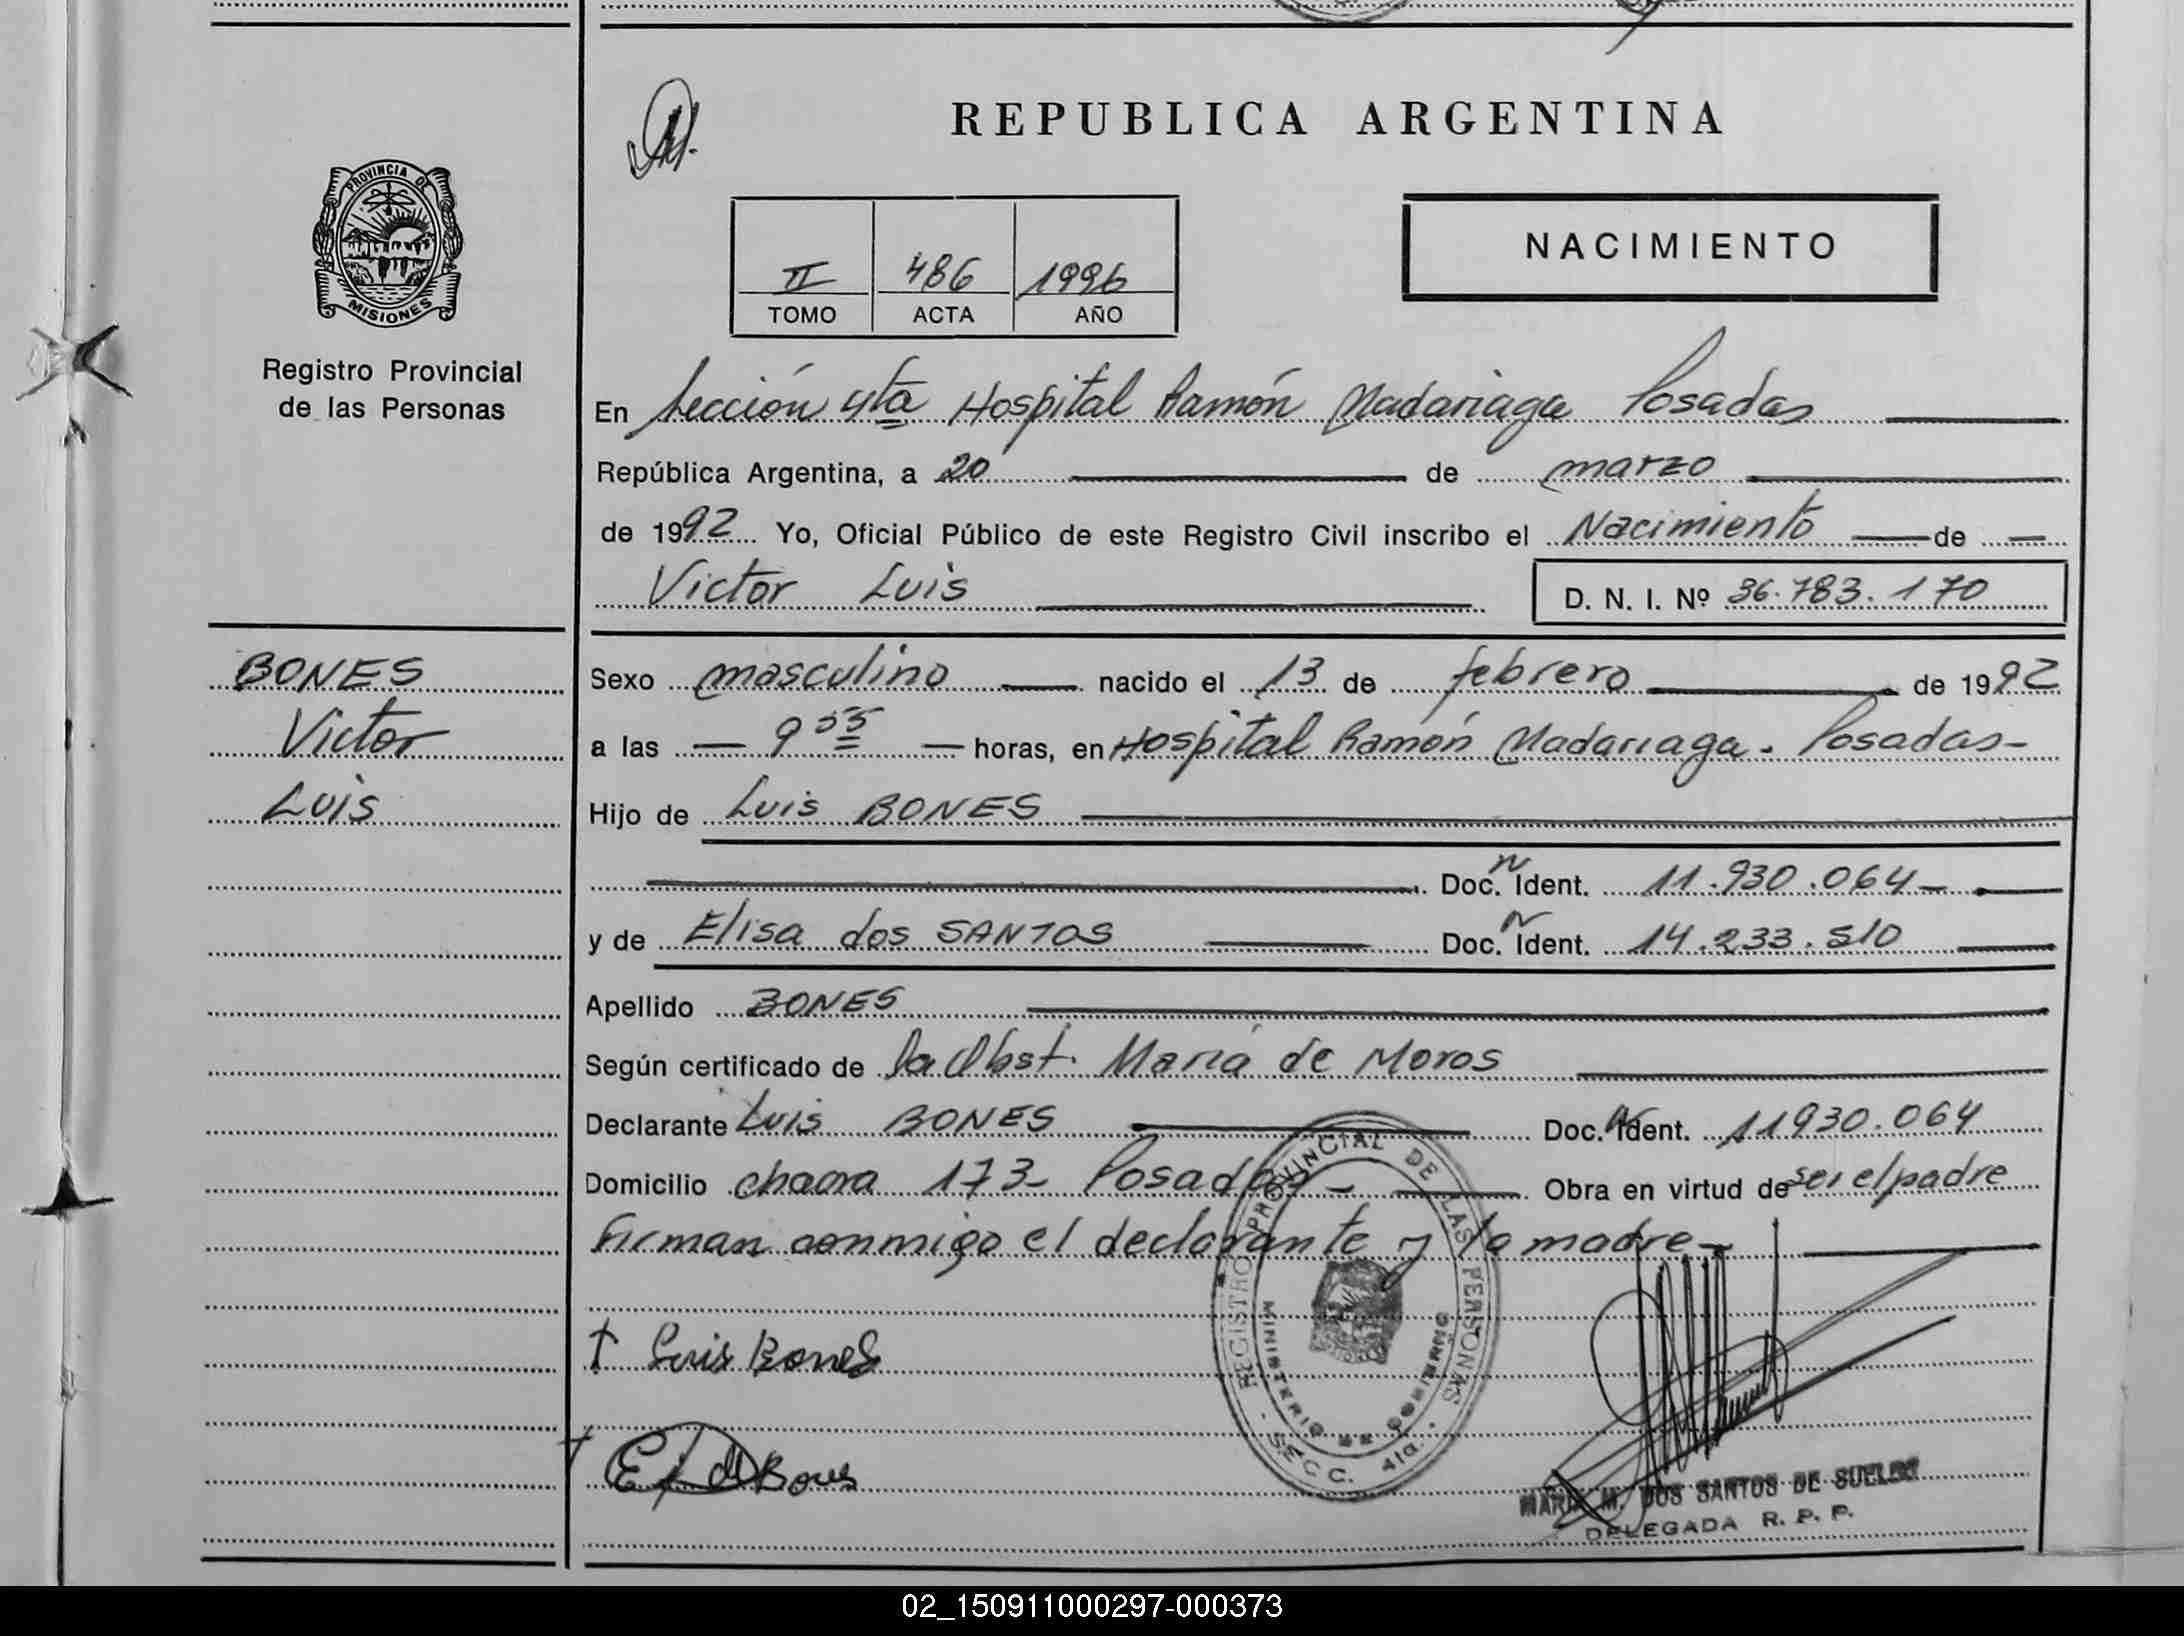 REPUBLICA ARGENTINA
PROVINCIA DE
MISIONES
Registro Provincial
de las Personas
II 486 1996
TOMO ACTA AÑO
NACIMIENTO
En Sección 4ta Hospital Ramón Madariaga Posadas
República Argentina, a 20 de marzo
de 1992 Yo, Oficial Público de este Registro Civil inscribo el Nacimiento de
Victor Luis D. N. I. Nº 36.783.170
BONES
Victor
Luis
Sexo masculino nacido el 13 de febrero de 1992
a las 9 55 horas, en Hospital Ramón Madariaga. Posadas-
Hijo de Luis BONES
Doc. N Ident. 11.930.064-
y de Elisa dos SANTOS Doc. N Ident. 14.233.510
Apellido BONES
Según certificado de la Obst. Maria de Moros
Declarante Luis BONES Doc. N Ident. 11930.064
Domicilio chacra 173- Posadas- Obra en virtud de ser el padre
firman conmigo el declarante y la madre-
REGISTRO PROVINCIAL DE LAS PERSONAS
MINISTERIO DE GOBIERNO
SECC. 4ta.
Luis Bones
E de Bones
MARIA M. DOS SANTOS DE SUELDO
DELEGADA R. P. P.
02_150911000297-000373